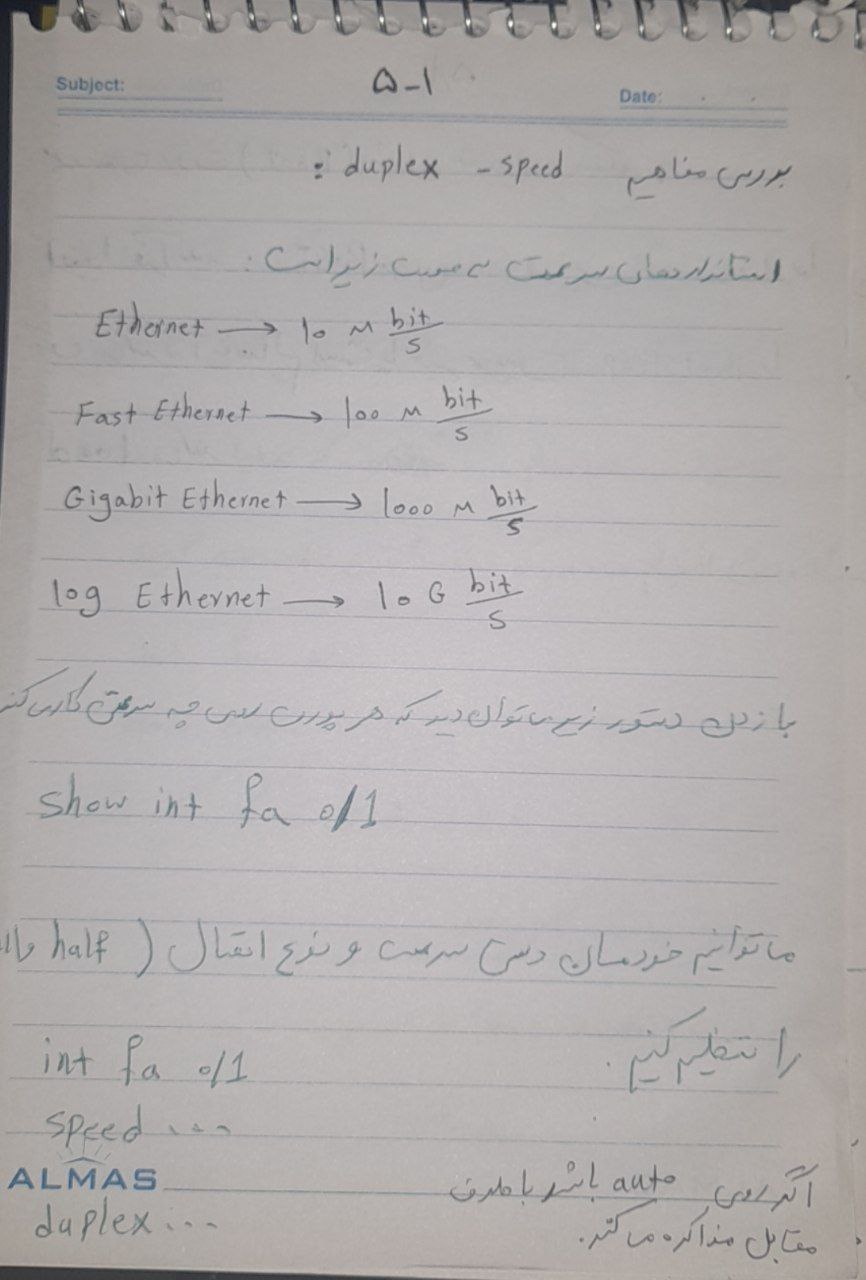 Subject:
۵-۱
Date:
بررسی مفاهیم duplex - speed :
استانداردهای سرعت به صورت زیر است :
Ethernet → 10 M bit/s
Fast Ethernet → 100 M bit/s
Gigabit Ethernet → 1000 M bit/s
10g Ethernet → 10 G bit/s
با زدن دستور زیر می توان دید که هر پورت روی چه سرعتی کار می کند
show int fa 0/1
ما توانیم خودمان دستی سرعت و نوع انتقال ( half
را تنظیم کنیم .
int fa 0/1
speed ...
ALMAS
duplex ...
اگر روی auto باشد با طرف
مقابل مذاکره می کند .